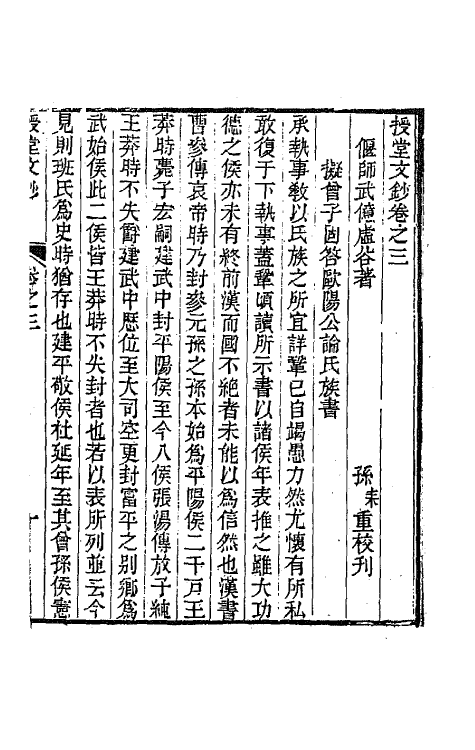 授堂文鈔卷之三
偃師武億虛谷著　孫耒重校刊
擬曾子固答歐陽公論氏族書
承執事敎以氏族之所宜詳鞏已自竭愚力然尤懷有所私
敢復于下執事蓋鞏頃讀所示書以諸侯年表推之雖大功
德之侯亦未有終前漢而國不絕者未能以爲信然也漢書
曹參傳哀帝時乃封參元孫之孫本始爲平陽侯二千戸王
莽時薨子宏嗣建武中封平陽侯至今八侯張湯傳放子純
王莽時不失爵建武中歷位至大司空更封富平之别鄉爲
武始侯此二侯皆王莽時不失封者也若以表所列並云今
見則班氏爲史時猶存也建平敬侯杜延年至其曾孫侯憲
授堂文鈔
卷之三
一